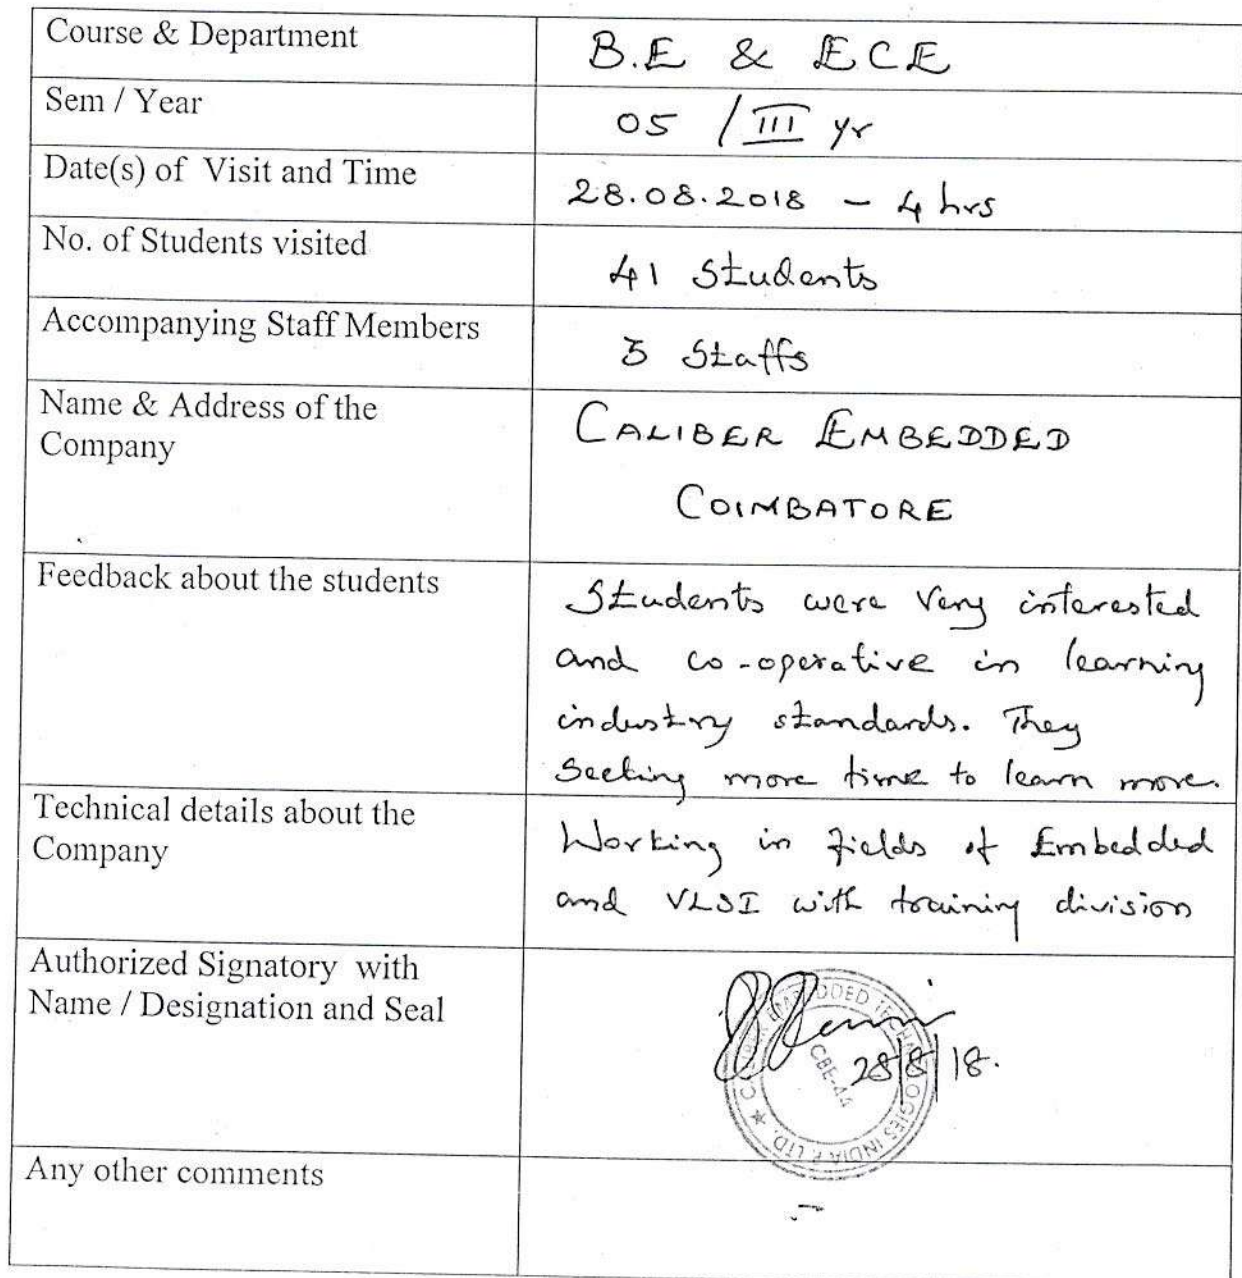 Course & Department
B.E & ECE
Sem / Year
05 / III yr
Date(s) of Visit and Time
28.08.2018 - 4 hrs
No. of Students visited
41 Students
Accompanying Staff Members
3 Staffs
Name & Address of the
Company
CALIBER EMBEDDED
COIMBATORE
Feedback about the students
Students were Very interested
and co-operative in learning
industry standards. They
Seeking more time to learn more.
Technical details about the
Company
Working in fields of Embedded
and VLSI with training division
Authorized Signatory with
Name / Designation and Seal
CALIBER EMBEDDED TECHNOLOGIES INDIA P LTD. ★
CBE-44
28/8/18.
Any other comments
-